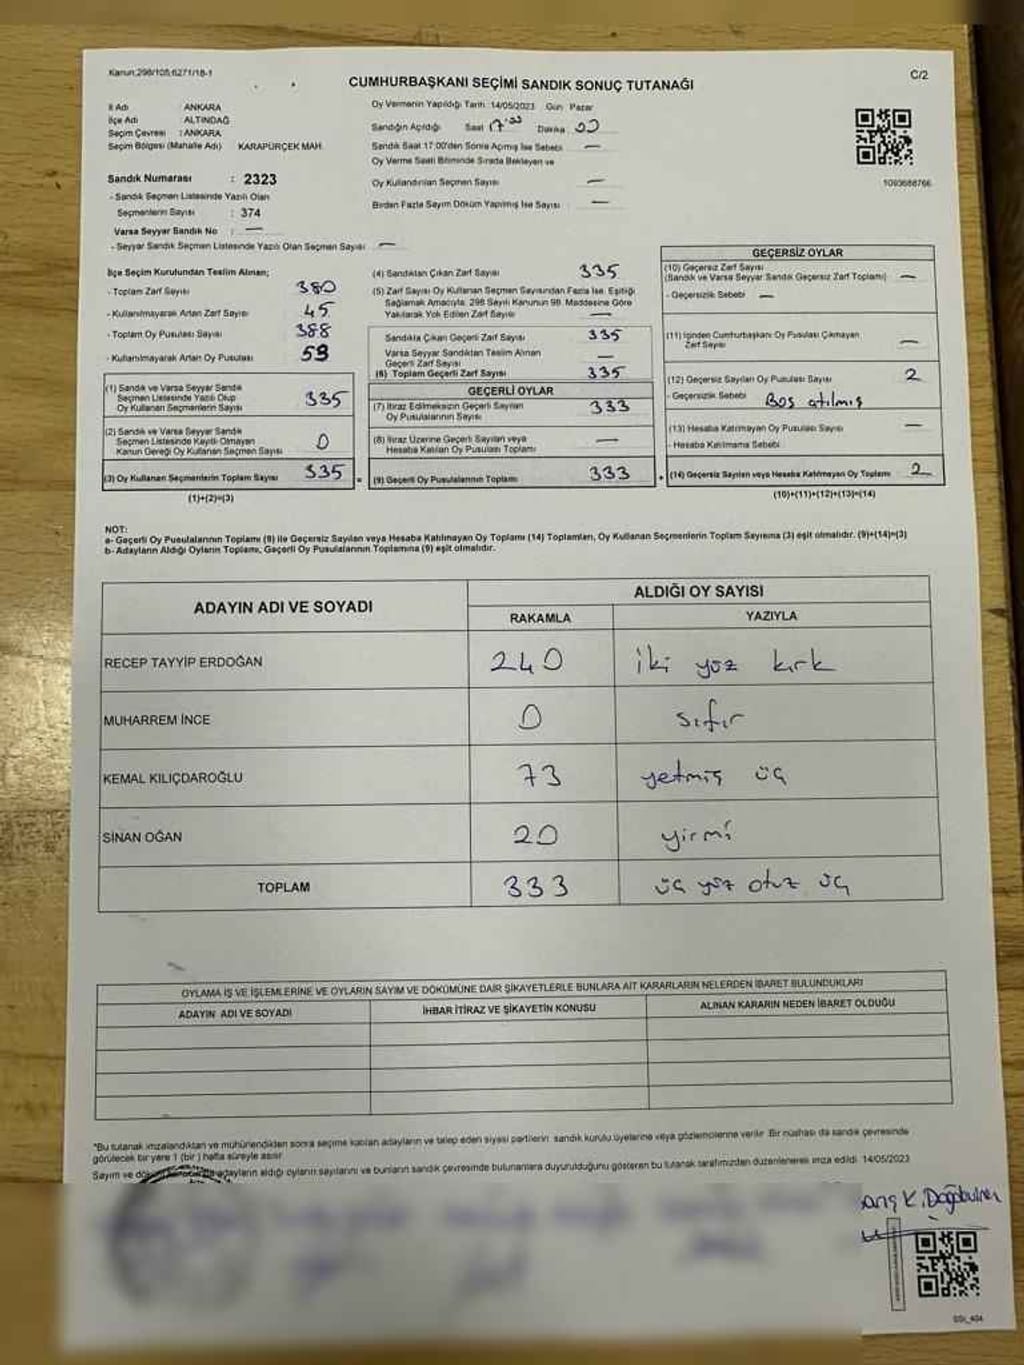 Kanun:298/105;6271/18-1
C/2
CUMHURBAŞKANI SEÇİMİ SANDIK SONUÇ TUTANAĞI
İl Adı ANKARA
İlçe Adı ALTINDAĞ
Seçim Çevresi : ANKARA
Seçim Bölgesi (Mahalle Adı) KARAPÜRÇEK MAH.
Oy Vermenin Yapıldığı Tarih: 14/05/2023 Gün: Pazar
Sandığın Açıldığı Saat 17:00 Dakika 00
Sandık Saat 17:00'den Sonra Açmış İse Sebebi —
Oy Verme Saati Bitiminde Sırada Bekleyen ve
Oy Kullandırılan Seçmen Sayısı —
Birden Fazla Sayım Döküm Yapılmış İse Sayısı —
1093688766
Sandık Numarası : 2323
- Sandık Seçmen Listesinde Yazılı Olan
Seçmenlerin Sayısı : 374
Varsa Seyyar Sandık No : —
- Seyyar Sandık Seçmen Listesinde Yazılı Olan Seçmen Sayısı —
İlçe Seçim Kurulundan Teslim Alınan;
- Toplam Zarf Sayısı 380
- Kullanılmayarak Artan Zarf Sayısı 45
- Toplam Oy Pusulası Sayısı 388
- Kullanılmayarak Artan Oy Pusulası 53
(1) Sandık ve Varsa Seyyar Sandık
Seçmen Listesinde Yazılı Olup
Oy Kullanan Seçmenlerin Sayısı 335
(2) Sandık ve Varsa Seyyar Sandık
Seçmen Listesinde Kayıtlı Olmayan
Kanun Gereği Oy Kullanan Seçmen Sayısı 0
(3) Oy Kullanan Seçmenlerin Toplam Sayısı 335
(1)+(2)=(3)
(4) Sandıktan Çıkan Zarf Sayısı 335
(5) Zarf Sayısı Oy Kullanan Seçmen Sayısından Fazla İse, Eşitliği
Sağlamak Amacıyla, 298 Sayılı Kanunun 98. Maddesine Göre
Yakılarak Yok Edilen Zarf Sayısı —
Sandıkta Çıkan Geçerli Zarf Sayısı 335
Varsa Seyyar Sandıktan Teslim Alınan
Geçerli Zarf Sayısı —
(6) Toplam Geçerli Zarf Sayısı 335
GEÇERLİ OYLAR
(7) İtiraz Edilmeksizin Geçerli Sayılan
Oy Pusulalarının Sayısı 333
(8) İtiraz Üzerine Geçerli Sayılan veya
Hesaba Katılan Oy Pusulası Toplamı —
= (9) Geçerli Oy Pusulalarının Toplamı 333
GEÇERSİZ OYLAR
(10) Geçersiz Zarf Sayısı
(Sandık ve Varsa Seyyar Sandık Geçersiz Zarf Toplamı) —
- Geçersizlik Sebebi —
(11) İçinden Cumhurbaşkanı Oy Pusulası Çıkmayan
Zarf Sayısı —
(12) Geçersiz Sayılan Oy Pusulası Sayısı 2
- Geçersizlik Sebebi Boş atılmış
(13) Hesaba Katılmayan Oy Pusulası Sayısı —
- Hesaba Katılmama Sebebi
+ (14) Geçersiz Sayılan veya Hesaba Katılmayan Oy Toplamı 2
(10)+(11)+(12)+(13)=(14)
NOT:
a- Geçerli Oy Pusulalarının Toplamı (9) ile Geçersiz Sayılan veya Hesaba Katılmayan Oy Toplamı (14) Toplamları, Oy Kullanan Seçmenlerin Toplam Sayısına (3) eşit olmalıdır. (9)+(14)=(3)
b- Adayların Aldığı Oyların Toplamı, Geçerli Oy Pusulalarının Toplamına (9) eşit olmalıdır.
ADAYIN ADI VE SOYADI
ALDIĞI OY SAYISI
RAKAMLA YAZIYLA
RECEP TAYYİP ERDOĞAN 240 iki yüz kırk
MUHARREM İNCE 0 sıfır
KEMAL KILIÇDAROĞLU 73 yetmiş üç
SİNAN OĞAN 20 yirmi
TOPLAM 333 üç yüz otuz üç
OYLAMA İŞ VE İŞLEMLERİNE VE OYLARIN SAYIM VE DÖKÜMÜNE DAİR ŞİKAYETLERLE BUNLARA AİT KARARLARIN NELERDEN İBARET BULUNDUKLARI
ADAYIN ADI VE SOYADI
İHBAR İTİRAZ VE ŞİKAYETİN KONUSU
ALINAN KARARIN NEDEN İBARET OLDUĞU
*Bu tutanak imzalandıktan ve mühürlendikten sonra seçime katılan adayların ve talep eden siyasi partilerin sandık kurulu üyelerine veya gözlemcilerine verilir. Bir nüshası da sandık çevresinde
görülecek bir yere 1 (bir) hafta süreyle asılır.
Sayım ve adayların aldığı oyların sayılarını ve bunların sandık çevresinde bulunanlara duyurulduğunu gösteren bu tutanak tarafımızdan düzenlenerek imza edildi. 14/05/2023